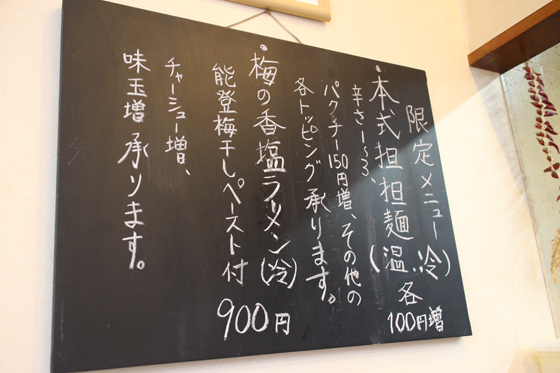 限定メニュー
・本式担担麺(温、冷)各100円増
辛さ1~3、
パクチー150円増、その他の
各トッピング承ります。
・梅の香塩ラーメン(冷)
能登梅干しペースト付 900円
チャーシュー増、
味玉増 承ります。